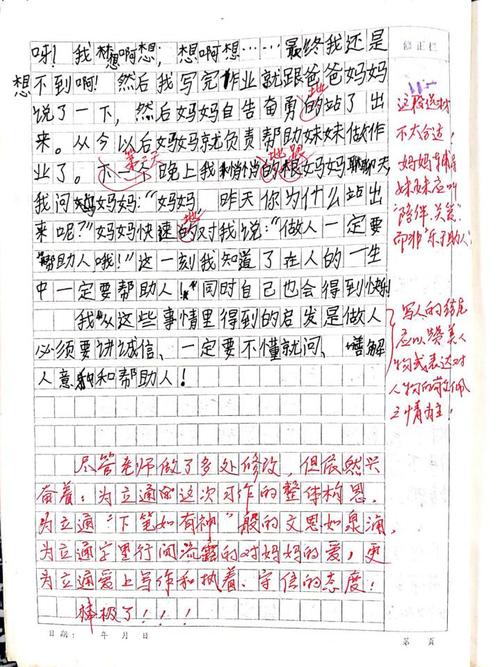 呀！我想啊想；想啊想……最终我还是
想不到啊！然后我写完作业就跟爸爸妈妈
说了一下，然后妈妈自告奋勇的站了出
地
来。从今以后妈妈就负责帮助妹妹做作
业了。第二天晚上我悄悄的跟妈妈聊聊天，
地跟
我问妈妈：“妈妈，昨天你为什么站出
来呢？”妈妈快速的对我说：“做人一定要
地
帮助人哦！”这一刻我知道了在人的一生
中一定要帮助人，同时自己也会得到快乐！
我从这些事情里得到的启发是做人
必须要讲诚信、一定要不懂就问、善解
人意和帮助人！
修正栏
这段选材
不太合适，
妈妈辅导
妹妹应叫
“陪伴、关爱”
而非“乐于助人”
写人的结尾
应以赞美人
物或表达对
人物的敬佩
之情为主！
尽管老师做了多处修改，但依然兴
奋着：为立通这次习作的整体构思，
为立通“下笔如有神”般的文思如泉涌，
为立通字里行间流露的对妈妈的爱，更
为立通爱上写作和执着、守信的态度！
棒极了！！！
日期： 年 月 日
第 页